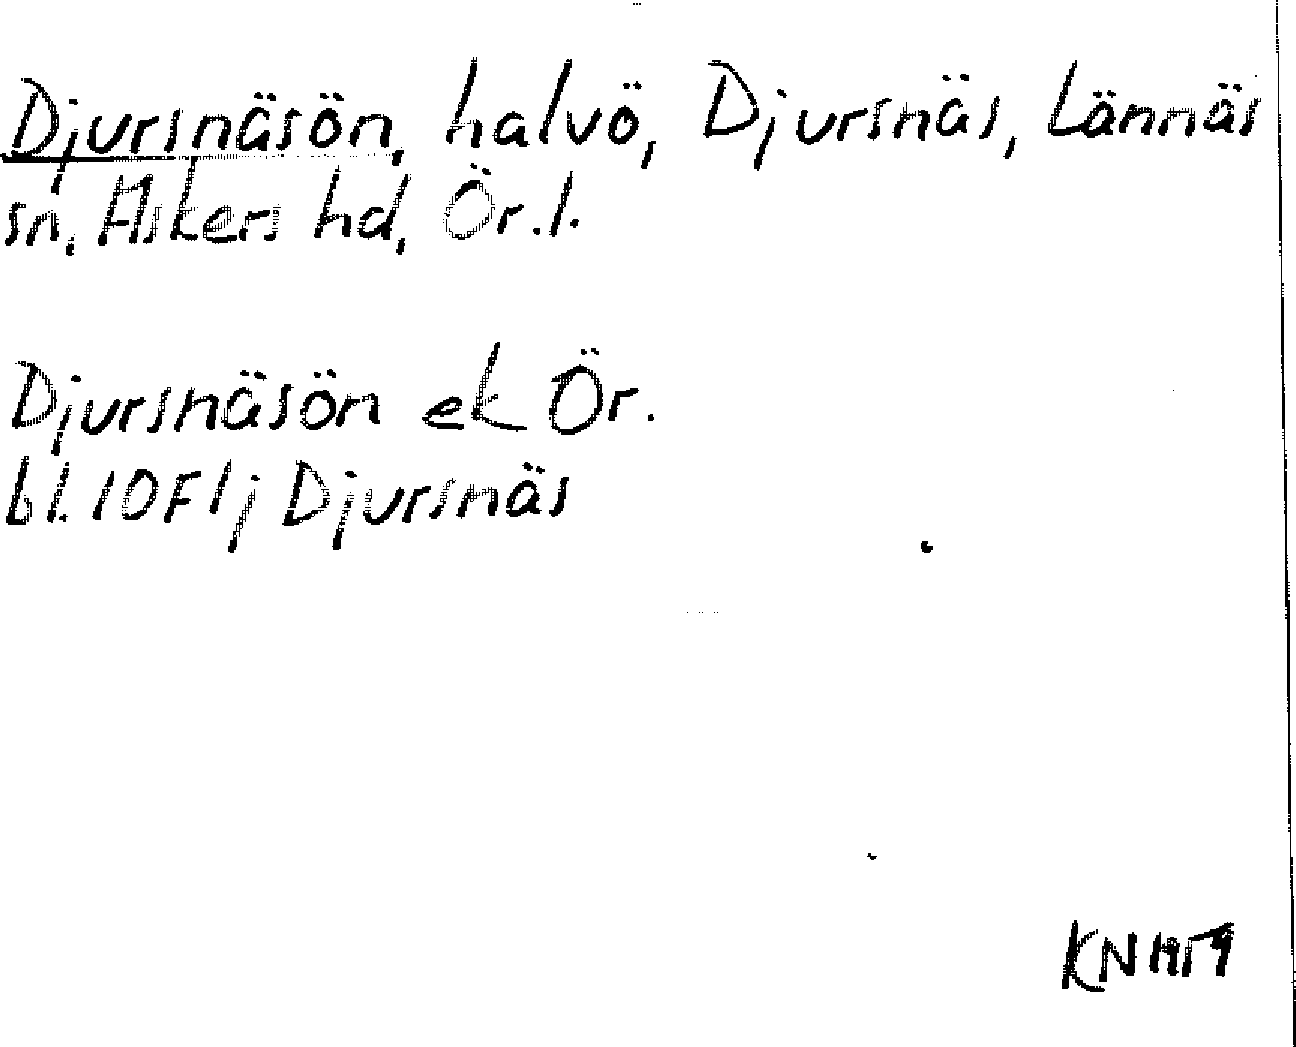 Djursnäsön, halvö, Djursnäs, Lännäs
sn, Askers hd, Ör.l.
Djursnäsön ek Ör.
bl. 10F1j Djursnäs
KN